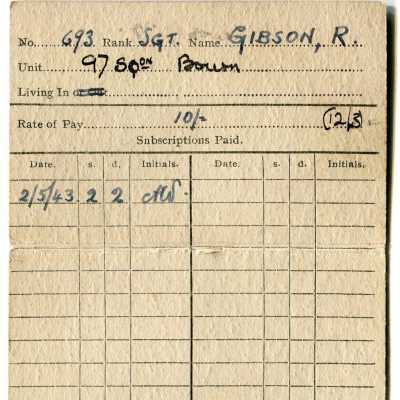 No. 693 Rank SGT. Name GIBSON, R.
Unit 97 SQDN Bourn
Living In or
Rate of Pay 10/- (12/3)
Subscriptions Paid.
Date. s. d. Initials. Date. s. d. Initials.
2/5/43 2 2